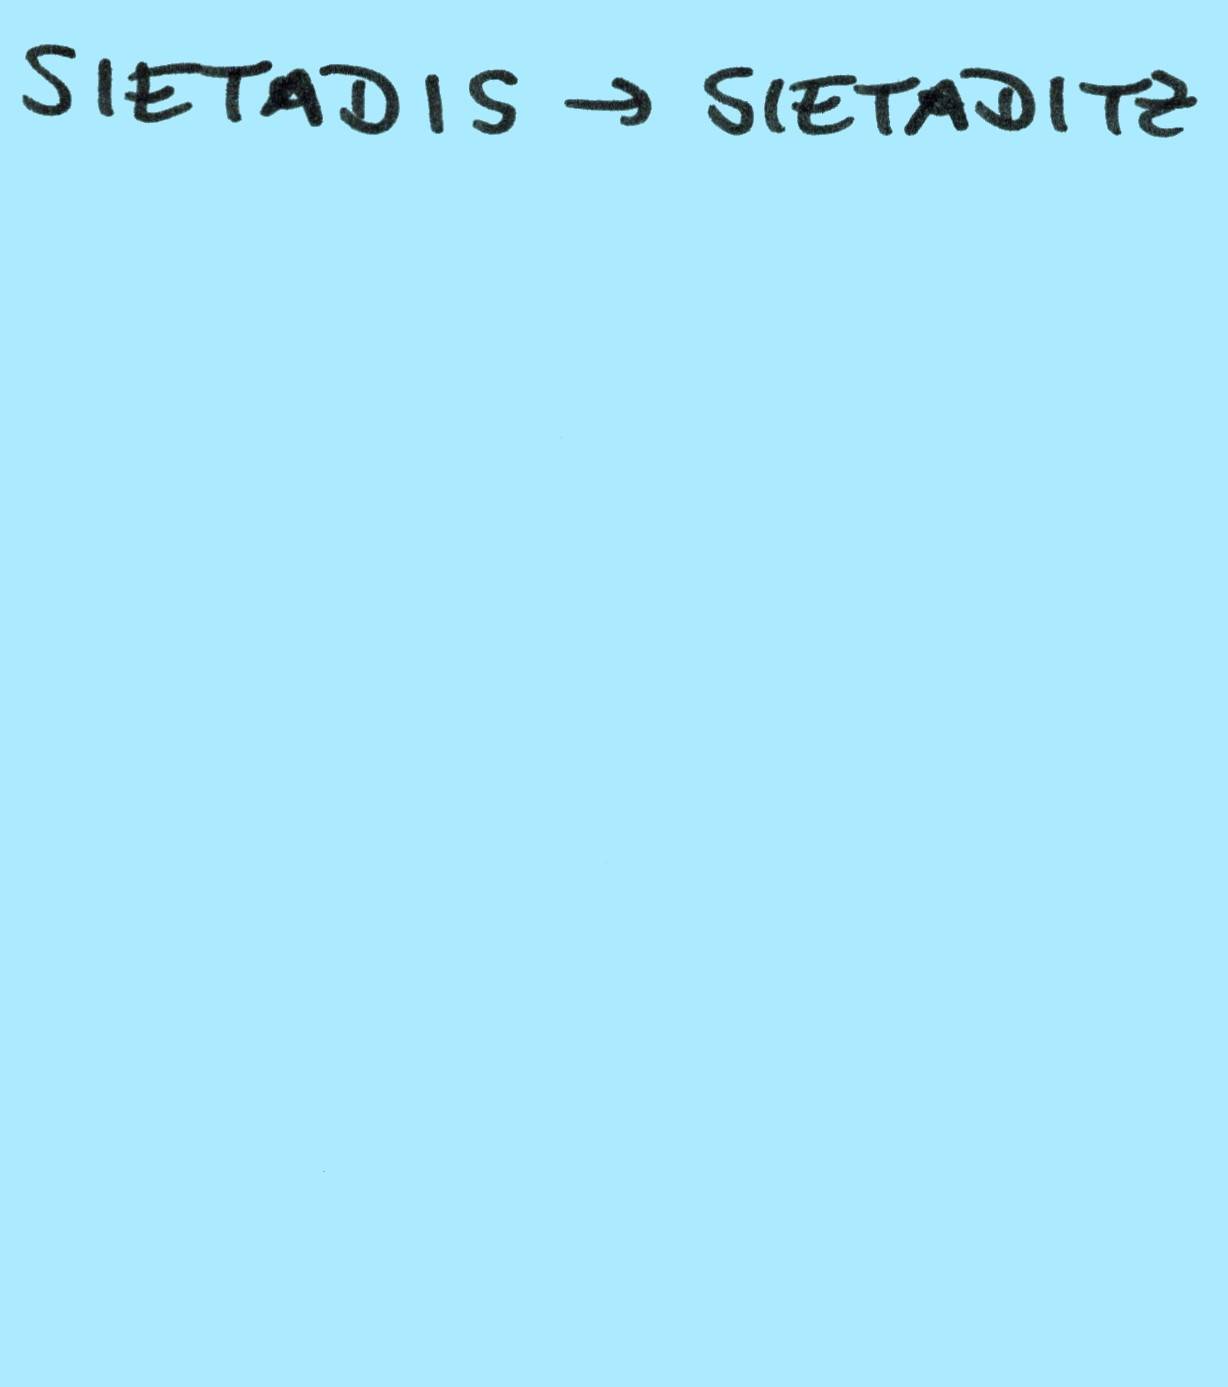 SIETADIS → SIETADITZ